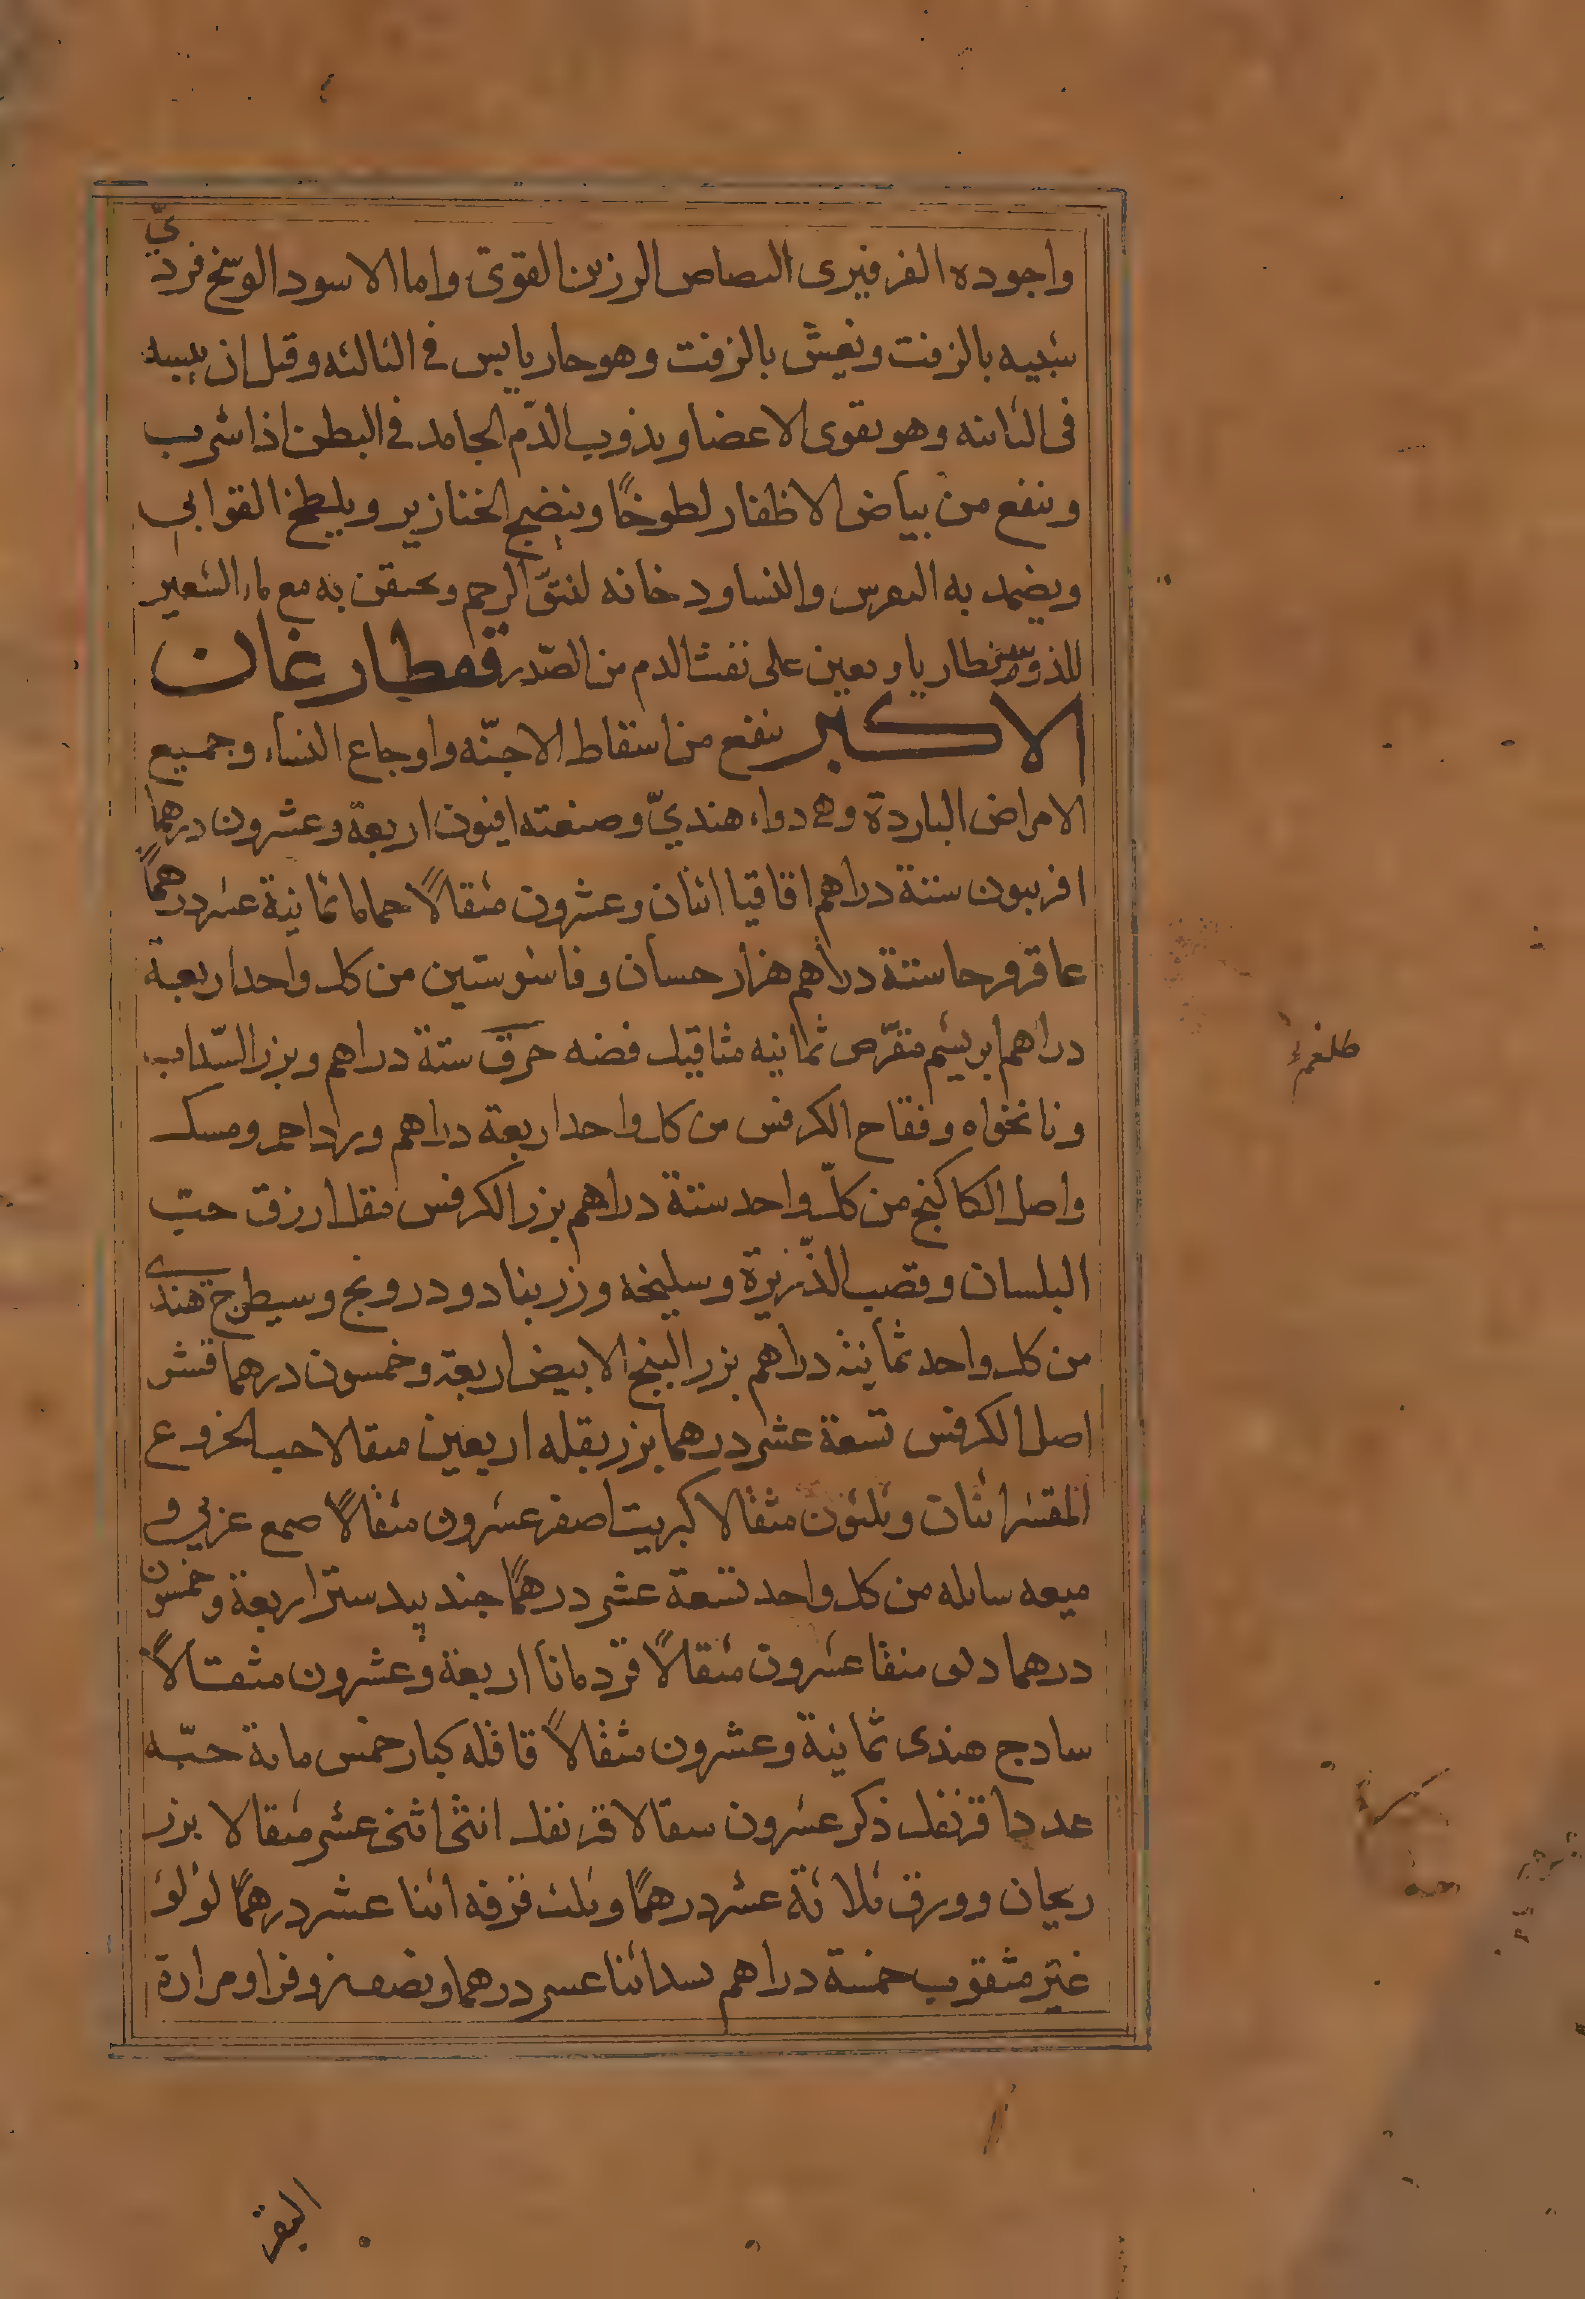 واجوده الفرفيرى البصاص الرزين القوىّ واما الاسود الوسخ فردىّ
شبيه بالزفت ويغش بالزفت وهو حار يابس فى الثالثه وقيل ان يبسه
فى الثانيه وهو يقوى الاعضا ويذوب الدّم الجامد فى البطن اذا شرب
وينفع من بياض الاظفار لطوخًا وينضج الخنازير ويلطخ القوابي
ويضمد به النقرس والنسا ودخانه لنتوّ الرحم ويحتقن به مع ماء الشعير
للذوسنطاريا ويعين على نفث الدم من الصّدر قفطارغان
الاكبر ينفع من اسقاط الاجنّه واوجاع النساء وجميع
الامراض الباردة وهى دواء هنديّ وصنعته افيون اربعة وعشرون درهما
افربيون ستة دراهم اقاقيا اثنان وعشرون مثقالاً حماما ثمانية عشر درهماً
عاقرقرحا ستة دراهم هزار حسان وفاشرستين من كل واحد اربعة
دراهم ابريشم مقرّض ثمانيه مثاقيل فضه حرق ستة دراهم وبزر السّداب
ونانخواه وفقاح الكرفس من كل واحد اربعة دراهم ورد احمر ومسك
واصل الكاكنج من كلّ واحد ستة دراهم بزر الكرفس مقل ازرق حبّ
البلسان وقصب الذّريرة وسليخه وزرنباد ودرونج وسيطرج هندى
من كل واحد ثمانية دراهم بزر البنج الابيض اربعة وخمسون درهما قشر
اصل الكرفس تسعة عشر درهما بزر بقله اربعين مثقالا حب الخروع
المقشر اثنان وثلثون مثقالا كبريت اصفر عشرون مثقالاً صمغ عربي و
ميعه سايله من كل واحد تسعة عشر درهمًا جندبيدستر اربعة وخمسون
درهما دبق منقا عشرون مثقالاً قردمانا اربعة وعشرون مثقالاً
سادج هندى ثمانية وعشرون مثقالاً قاقله كبار خمس ماية حبّه
عددا قرنفل ذكر عشرون مثقالا قرنفل انثى اثنى عشر مثقالا بزر
ريحان وورق ثلاثة عشر درهمًا وثلث قرفه اثنا عشر درهمًا لولو
غير مثقوب خمسة دراهم بسد اثنا عشر درهما ونصف زوفرا ومرارة
البقر